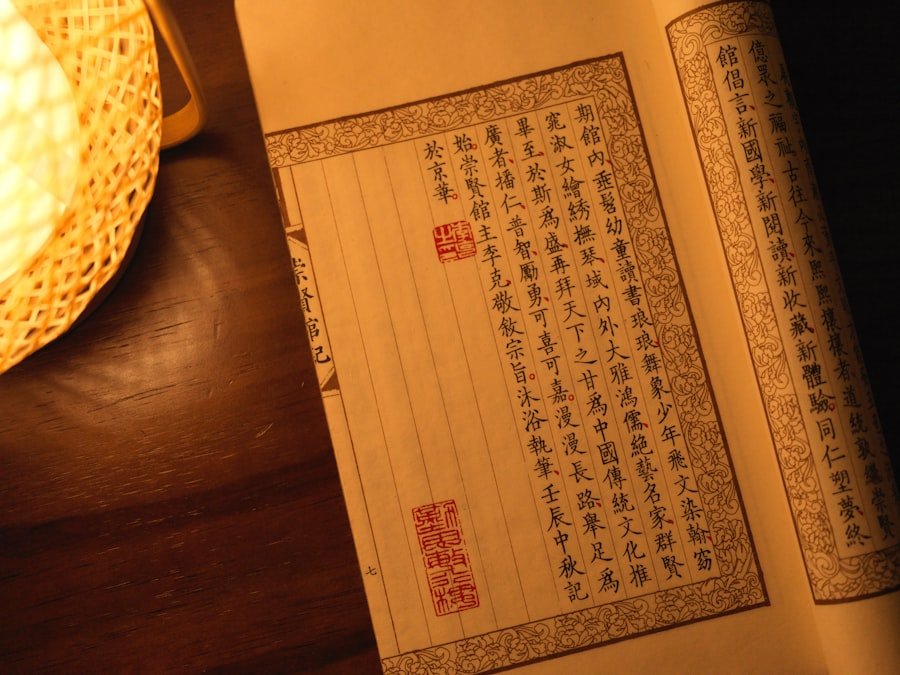 億眾之福祉、古往今來、熙熙攘攘者、道統敦繼、崇賢
館倡言、新國學、新閱讀、新收藏、新體驗。同仁塑夢、終
期館內、垂髫幼童讀書琅琅、舞象少年飛文染翰、窈
窕淑女繪綉撫琴、域內外大雅鴻儒、絕藝名家、群賢
畢至、於斯爲盛、再拜天下之甘爲中國傳統文化推
廣者、播仁、普智、勵勇、可喜可嘉。漫漫長路、舉足爲
始。崇賢館主李克敬敘宗旨。沐浴執筆、壬辰中秋記
於京華。
崇賢館記
七